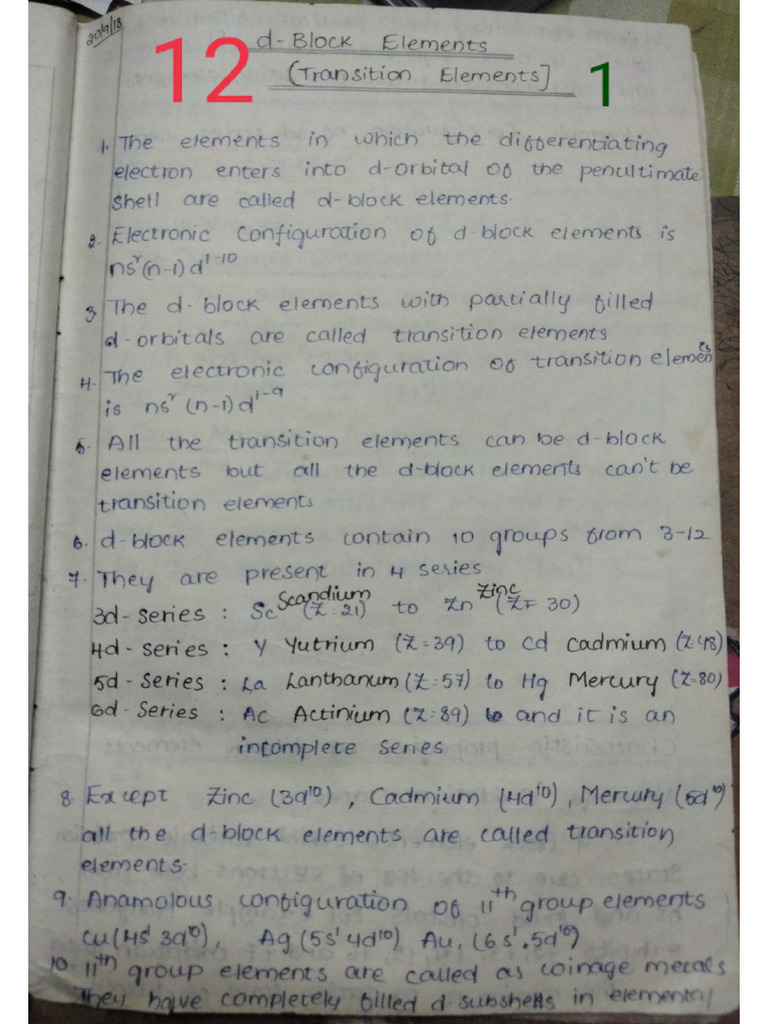 20/9/18
12 d-Block Elements
(Transition Elements] 1
1. The elements in which the differentiating
electron enters into d-orbital of the penultimate
shell are called d-block elements.
2. Electronic Configuration of d-block elements is
nsʳ(n-1)d¹⁻¹⁰
3. The d-block elements with partially filled
d-orbitals are called transition elements
4. The electronic configuration of transition elements
is nsʳ (n-1)d¹⁻⁹
5. All the transition elements can be d-block
elements but all the d-block elements can't be
transition elements
6. d-block elements contain 10 groups from 3-12
7. They are present in 4 series
3d-series : Sc Scandium (Z=21) to Zn Zinc (Z= 30)
4d-series : Y Yutrium (Z=39) to Cd Cadmium (Z=48)
5d-series : La Lanthanum (Z=57) to Hg Mercury (Z=80)
6d-series : Ac Actinium (Z=89) to and it is an
incomplete series
8. Except Zinc (3d¹⁰), Cadmium (4d¹⁰), Mercury (5d¹⁰)
all the d-block elements are called transition
elements.
9. Anamolous configuration of 11ᵗʰ group elements
Cu(4s¹ 3d¹⁰), Ag (5s¹ 4d¹⁰) Au, (6s¹.5d¹⁰)
10. 11ᵗʰ group elements are called as coinage metals
They have completely filled d-subshells in elemental